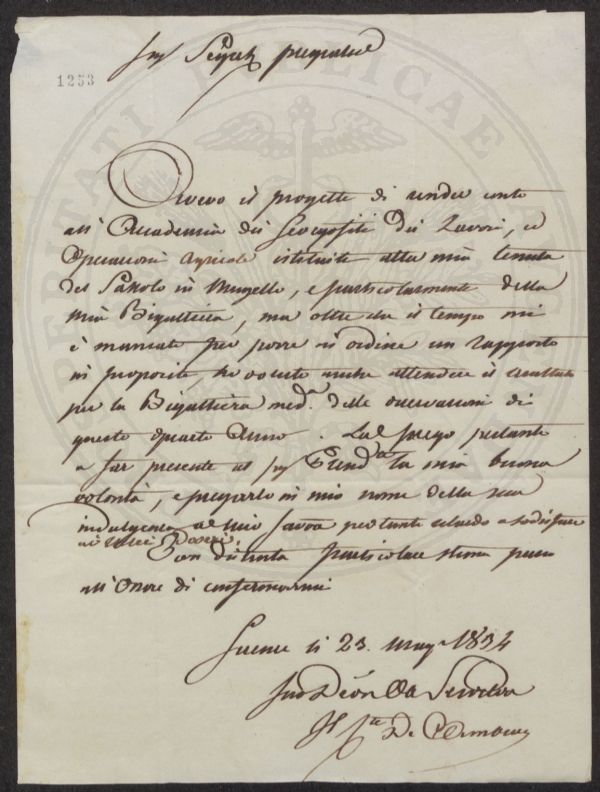 Sig.r Segret. pregiat.e
1253
Avevo il progetto di render conto
all'Accademia dei Georgofili dei Lavori, ed
Operazioni Agricole istituite alla mia tenuta
del in Mugello, e particolarmente della
mia Bigattiera, ma oltre che il tempo mi
è mancato per porre in ordine un rapporto
in proposito, ho voluto anche attendere il resultato
per la Bigattiera med.a delle osservazioni di
questo quarto Anno. La prego pertanto
a far presente al Sig. la mia buona
volontà, e pregarlo in mio nome della sua
indulgenza al mio favore per tanto ritardo a sodisfare
ai miei Doveri.
Con distinta particolare stima passo
all'Onore di confermarmi
Firenze li 23. Mag.o 1834
Suo Servitore
De
PROSPERITATI PUBLICAE